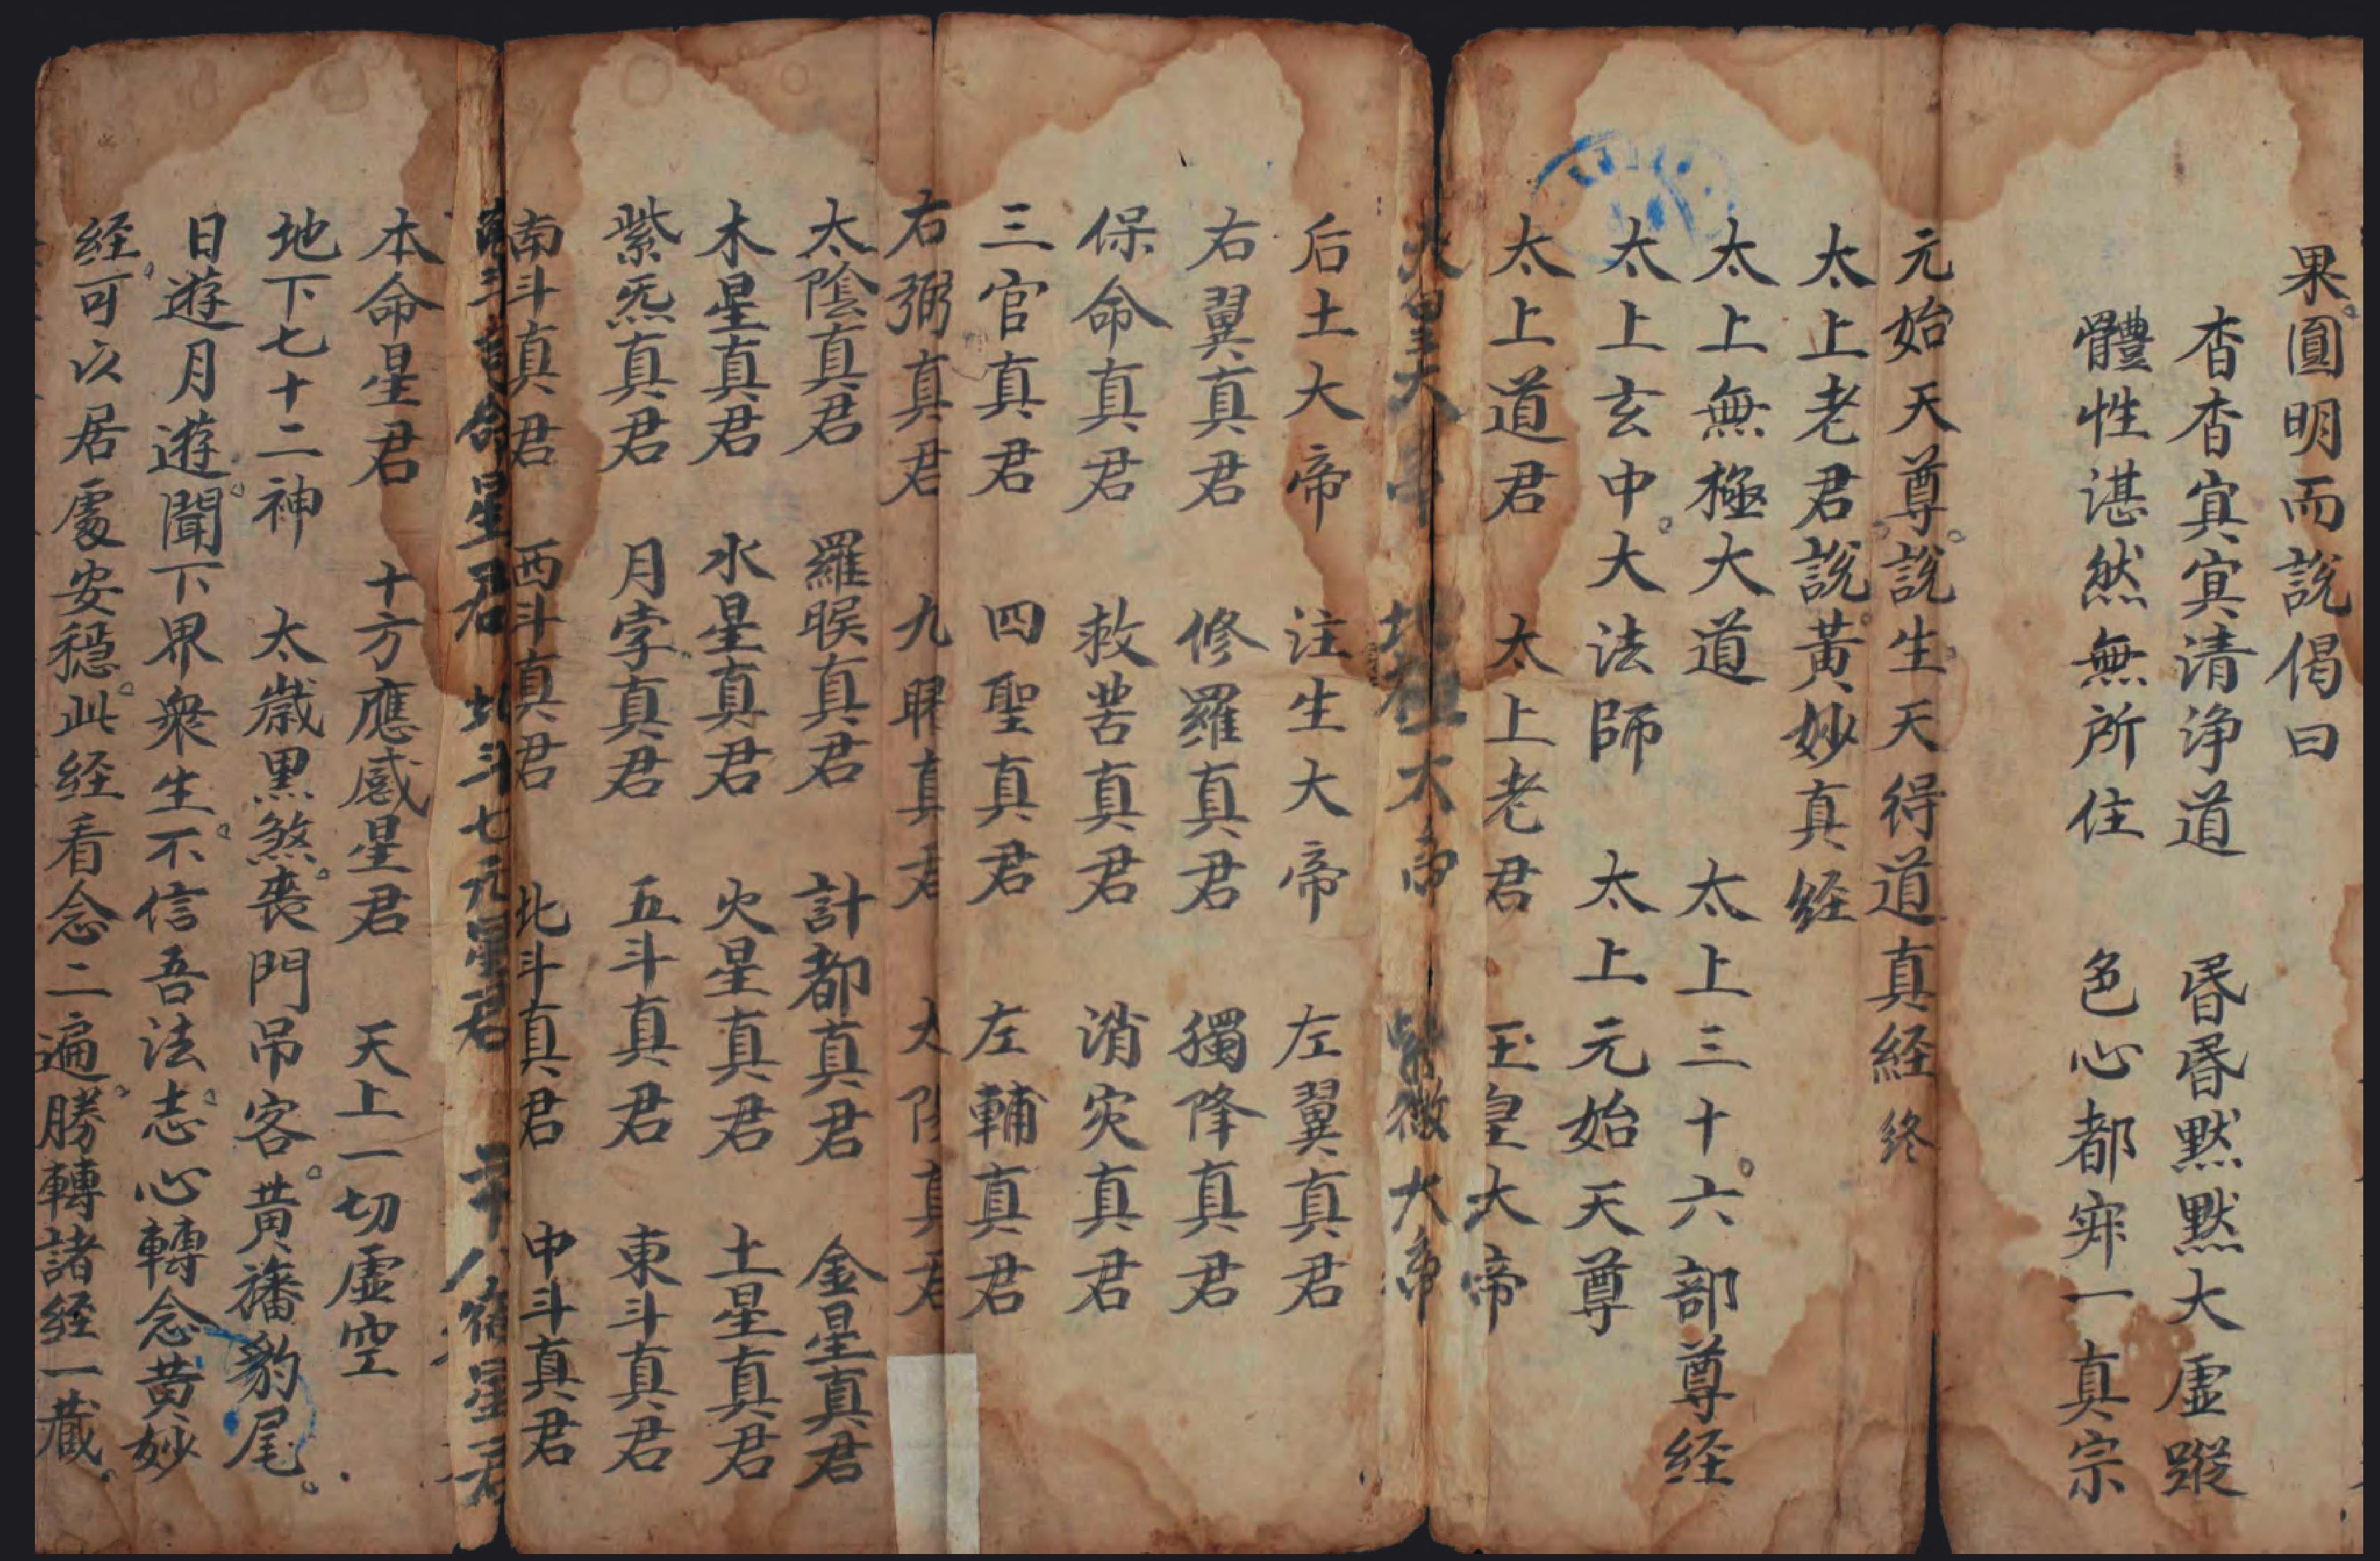 果圓明而說偈曰
杳杳㝠㝠清浄道　昬昬默默大虛蹤
體性湛然無所住　色心都寂一真宗
元始天尊說生天得道真経終
太上老君說黃妙真经
太上無極大道　太上三十六部尊经
太上玄中大法師　太上元始天尊
太上道君　太上老君　玉皇大帝
天皇大帝　北極大帝　紫微大帝
后土大帝　注生大帝　左翼真君
右翼真君　修羅真君　獨降真君
保命真君　救苦真君　消灾真君
三官真君　四聖真君　左輔真君
右弼真君　九曜真君　太陽真君
太陰真君　羅睺真君　計都真君　金星真君
木星真君　水星真君　火星真君　土星真君
紫炁真君　月孛真君　五斗真君　東斗真君
南斗真君　西斗真君　北斗真君　中斗真君
命星君　北斗七元星君　二十八宿星君
本命星君　十方應感星君　天上一切虛空
地下七十二神　太歲黒煞喪門吊客黄旛豹尾
日遊月遊聞下界衆生不信吾法志心轉念黄妙
经可以居處安穏此经看念二遍勝轉諸经一藏